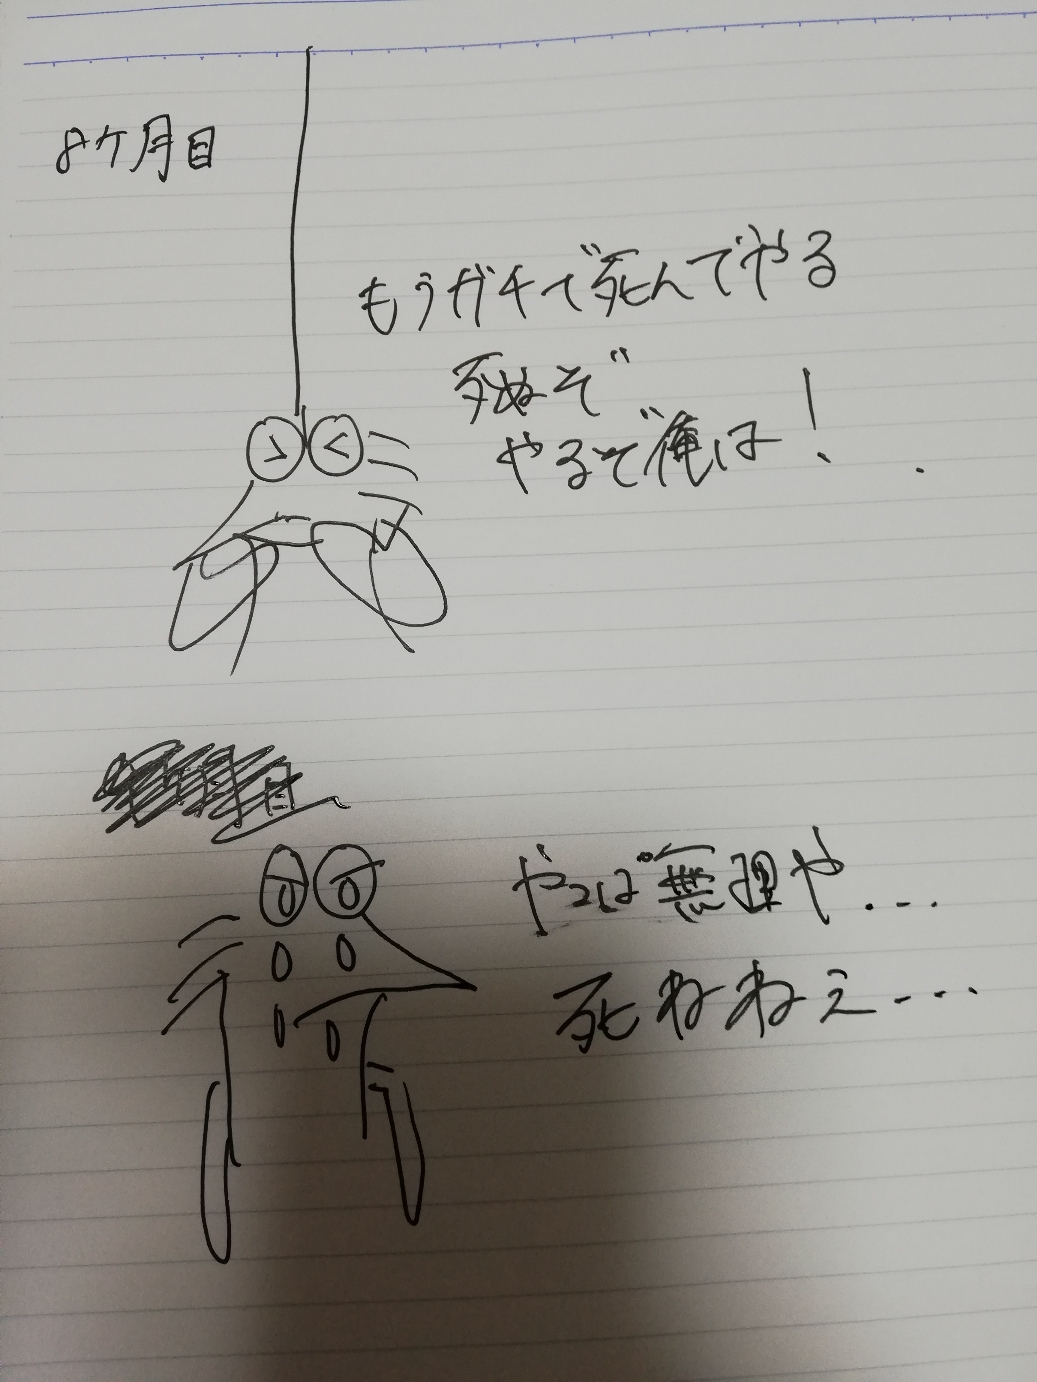 8ケ月目
もうガチで死んでやる
死ぬぞ
やるで俺は!
やっぱ無理や...
死ねねぇ...